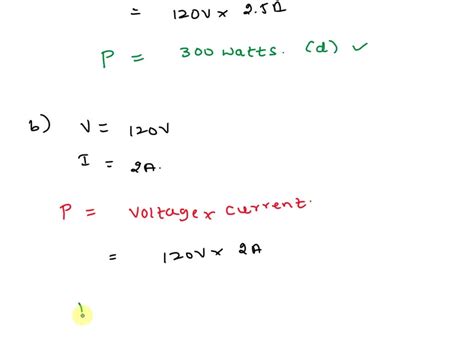 = 120V x 2.5A
P = 300 watts. (d) ✓
b) V = 120V
I = 2A.
P = Voltage x current.
= 120V x 2A